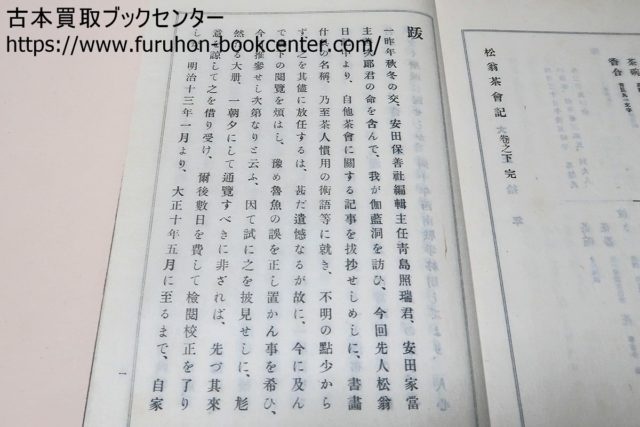 古本買取ブックセンター
https://www.furuhon-bookcenter.com/
茶碗
香合
松翁茶會記 大卷之下 完
跋
一昨年秋冬の交、安田保善社編輯主任靑島照瑞君、安田家當
主善次郎君の命を含んで、我が伽藍洞を訪ひ、今回先人松翁
日中より、自他茶會に關する記事を拔抄せしめしに、書畫
什の名稱、乃至茶人慣用の術語等に就き、不明の點少から
ず之を其儘に放任するは、甚だ遺憾なるが故に、今に及ん
下の閱覽を煩はし、豫め魯魚の誤を正し置かん事を希ひ、
今推參せし次第なりと云ふ、因て試に之を披見せしに、尨
然る大册、一朝夕にして通覽すべきに非ざれば、先づ其來
意諒して之を借り受け、爾後數日を費して檢閱校正を了り
し明治十三年一月より、大正十年五月に至るまで、自家
一